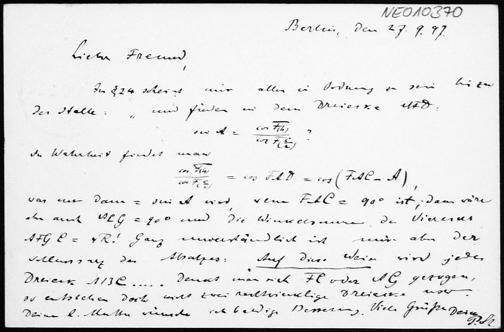 NEO10370
Berlin, den 27.9.97.
Lieber Freund,
In §24 scheint mir alles in Ordnung zu sein bis zu
der Stelle: „ und finden in dem Dreiecke AFD:
sin A = ?
In Wahrheit findet man
= cos FAD = cos (FAC - A),
was nur dann = sin A wird, wenn FAC = 90° ist; dann wäre
aber auch = 90° und die Winkelsumme des Vierecks
AFGC = 4R! Ganz unverständlich ist mir aber der
des Absatzes: Auf diese Weise wird jedes
Dreieck ABC ..... Denkt man sich FC oder AG gezogen,
so entstehen doch nicht zwei rechtwinklige Dreiecke
Deine l. Mutter baldige Besserung. Viele Grüße Dein